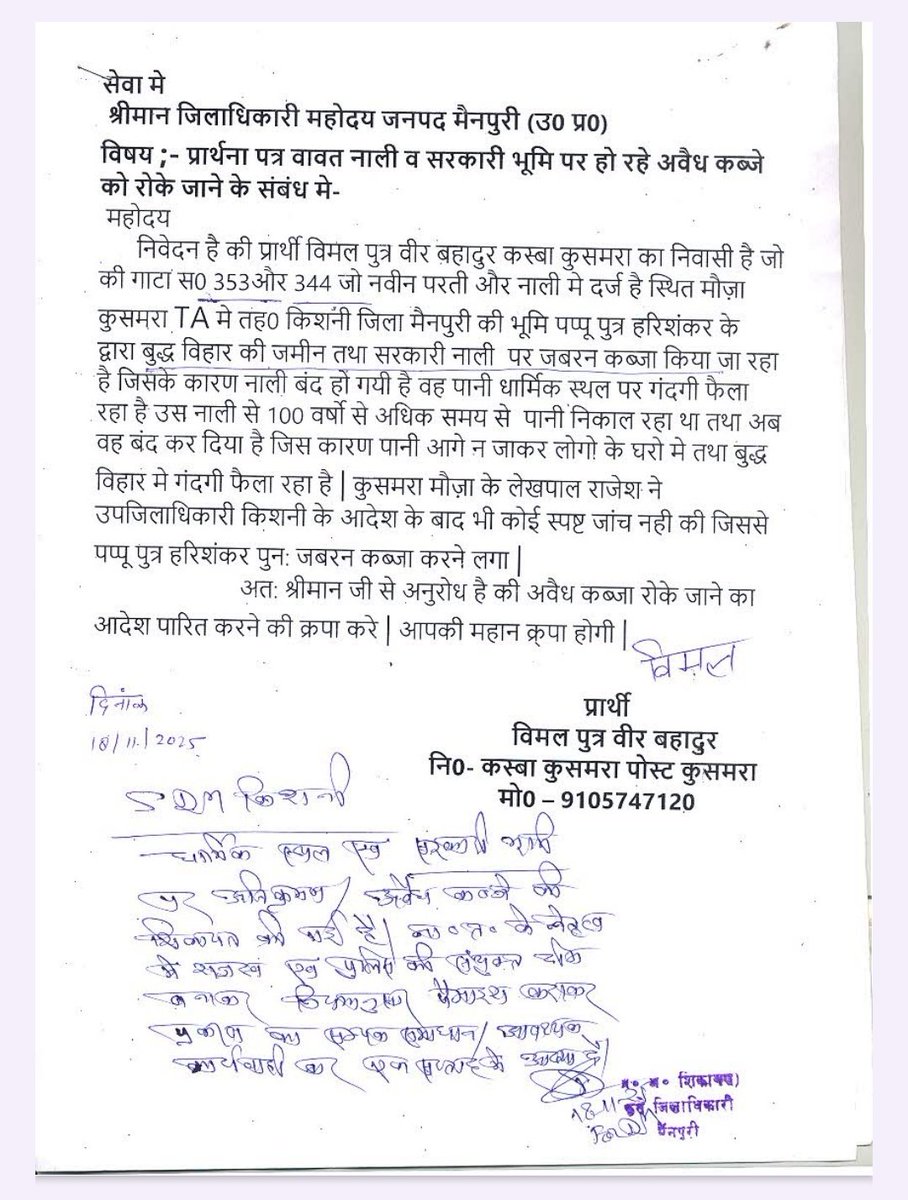 सेवा मे
श्रीमान जिलाधिकारी महोदय जनपद मैनपुरी (उ0 प्र0)
विषय ;- प्रार्थना पत्र वावत नाली व सरकारी भूमि पर हो रहे अवैध कब्जे
को रोके जाने के संबंध मे-
महोदय
निवेदन है की प्रार्थी विमल पुत्र वीर बहादुर कस्बा कुसमरा का निवासी है जो
की गाटा स0 353और 344 जो नवीन परती और नाली मे दर्ज है स्थित मौज़ा
कुसमरा TA मे तह0 किशनी जिला मैनपुरी की भूमि पप्पू पुत्र हरिशंकर के
द्वारा बुद्ध विहार की जमीन तथा सरकारी नाली पर जबरन कब्जा किया जा रहा
है जिसके कारण नाली बंद हो गयी है वह पानी धार्मिक स्थल पर गंदगी फैला
रहा है उस नाली से 100 वर्षो से अधिक समय से पानी निकाल रहा था तथा अब
वह बंद कर दिया है जिस कारण पानी आगे न जाकर लोगो के घरो मे तथा बुद्ध
विहार मे गंदगी फैला रहा है | कुसमरा मौज़ा के लेखपाल राजेश ने
उपजिलाधिकारी किशनी के आदेश के बाद भी कोई स्पष्ट जांच नही की जिससे
पप्पू पुत्र हरिशंकर पुन: जबरन कब्जा करने लगा |
अत: श्रीमान जी से अनुरोध है की अवैध कब्जा रोके जाने का
आदेश पारित करने की क्रपा करे | आपकी महान क्र्पा होगी |
विमल
दिनांक
18/11/2025
प्रार्थी
विमल पुत्र वीर बहादुर
नि0- कस्बा कुसमरा पोस्ट कुसमरा
मो0 – 9105747120
SDM किशनी
धार्मिक स्थल एवं सरकारी भूमि
पर अतिक्रमण/ अवैध कब्जे की
शिकायत की गई है। ना०त० के नेतृत्व
में राजस्व एवं पुलिस की संयुक्त टीम
बनाकर नियमानुसार पैमाइश कराकर
प्रकरण का सम्यक समाधान/ आवश्यक
कार्यवाही कर एक सप्ताह में आख्या दें।
18-11-25
(शिकायत)
जिलाधिकारी
मैनपुरी